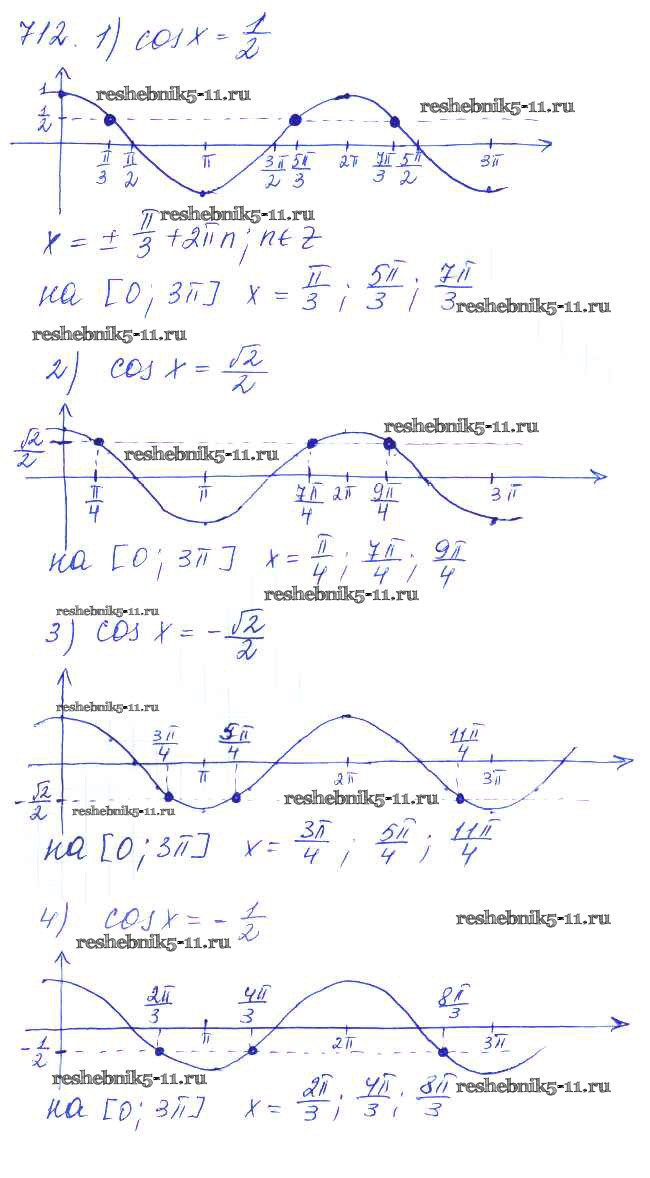 712. 1) cos x = 1/2
reshebnik5-11.ru
reshebnik5-11.ru
1
1/2
π/3 π/2 π 3π/2 5π/3 2π 7π/3 5π/2 3π
reshebnik5-11.ru
x = ± π/3 + 2πn; n ∈ Z
на [0; 3π] x = π/3; 5π/3; 7π/3
reshebnik5-11.ru
reshebnik5-11.ru
2) cos x = √2/2
reshebnik5-11.ru
√2/2
reshebnik5-11.ru
π/4 π 7π/4 2π 9π/4 3π
на [0; 3π] x = π/4; 7π/4; 9π/4
reshebnik5-11.ru
reshebnik5-11.ru
3) cos x = -√2/2
reshebnik5-11.ru
3π/4 5π/4 11π/4
π 2π 3π
-√2/2
reshebnik5-11.ru
reshebnik5-11.ru
на [0; 3π] x = 3π/4; 5π/4; 11π/4
4) cos x = -1/2
reshebnik5-11.ru
reshebnik5-11.ru
2π/3 4π/3 8π/3
π 2π 3π
-1/2
reshebnik5-11.ru
reshebnik5-11.ru
на [0; 3π] x = 2π/3; 4π/3; 8π/3